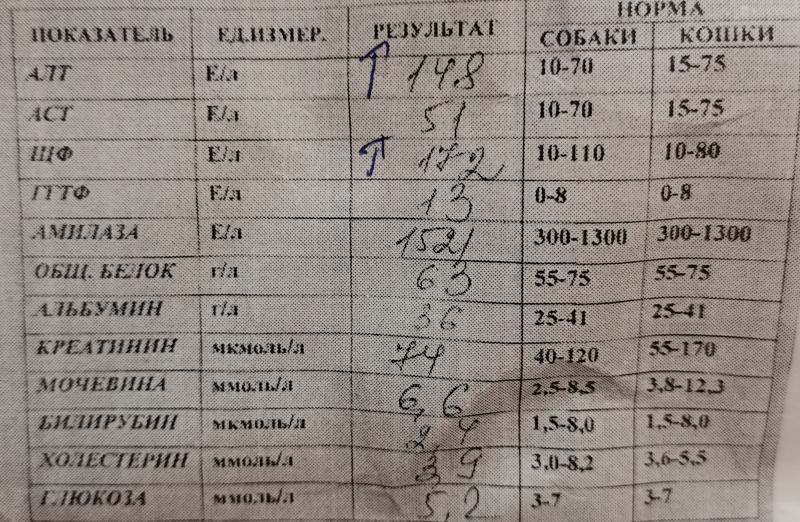 ПОКАЗАТЕЛЬ ЕД.ИЗМЕР. РЕЗУЛЬТАТ НОРМА
СОБАКИ КОШКИ
АЛТ Е/л ↑ 148 10-70 15-75
АСТ Е/л 51 10-70 15-75
ЩФ Е/л ↑ 172 10-110 10-80
ГГТФ Е/л 13 0-8 0-8
АМИЛАЗА Е/л 1521 300-1300 300-1300
ОБЩ. БЕЛОК г/л 63 55-75 55-75
АЛЬБУМИН г/л 36 25-41 25-41
КРЕАТИНИН мкмоль/л 74 40-120 55-170
МОЧЕВИНА ммоль/л 6,6 2,5-8,5 3,8-12,3
БИЛИРУБИН мкмоль/л 2,4 1,5-8,0 1,5-8,0
ХОЛЕСТЕРИН ммоль/л 3,9 3,0-8,2 3,6-5,5
ГЛЮКОЗА ммоль/л 5,2 3-7 3-7